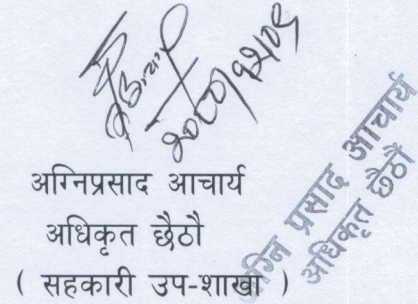 अग्निप्रसाद आचार्य
अधिकृत छैठौ
( सहकारी उप-शाखा )
अग्नि प्रसाद आचार्य
अधिकृत छैठौं